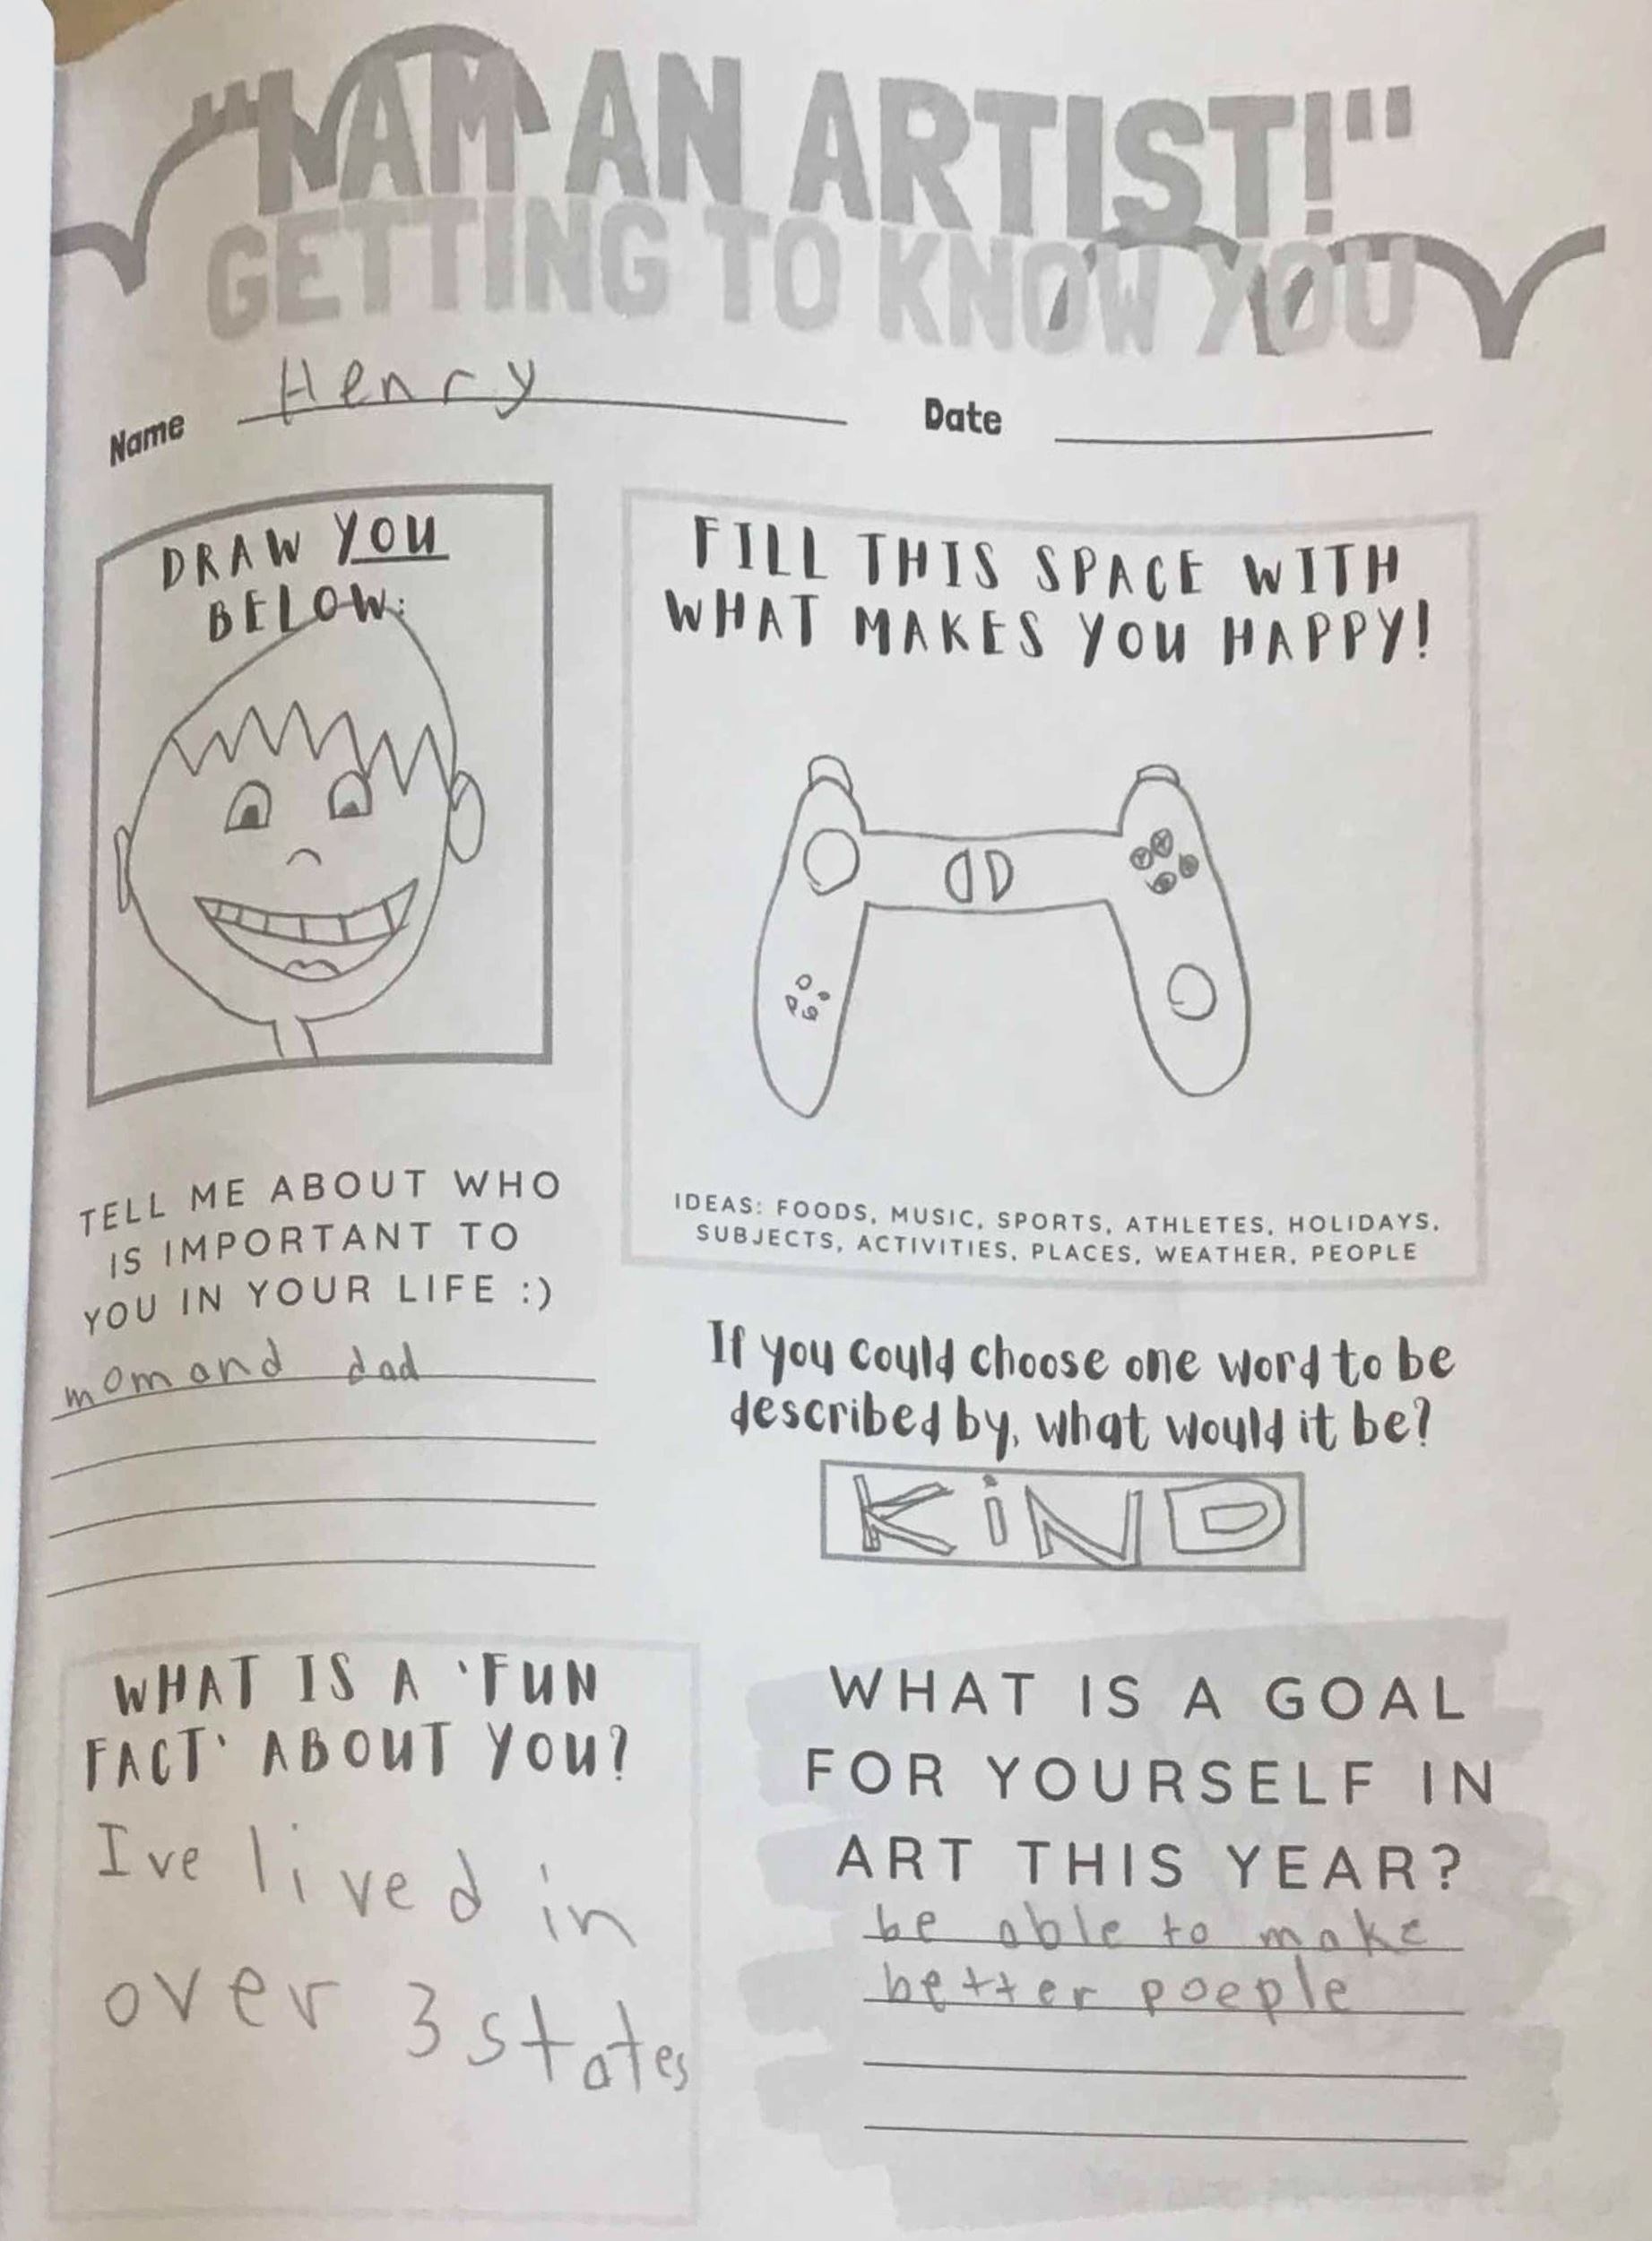 "I AM AN ARTIST!"
GETTING TO KNOW YOU
Name Henry Date
DRAW YOU
BELOW:
FILL THIS SPACE WITH
WHAT MAKES YOU HAPPY!
IDEAS: FOODS, MUSIC, SPORTS, ATHLETES, HOLIDAYS,
SUBJECTS, ACTIVITIES, PLACES, WEATHER, PEOPLE
TELL ME ABOUT WHO
IS IMPORTANT TO
YOU IN YOUR LIFE :)
mom and dad
If you could choose one word to be
described by, what would it be?
KiND
WHAT IS A 'FUN
FACT' ABOUT YOU?
Ive lived in
over 3 states
WHAT IS A GOAL
FOR YOURSELF IN
ART THIS YEAR?
be able to make
better poeple